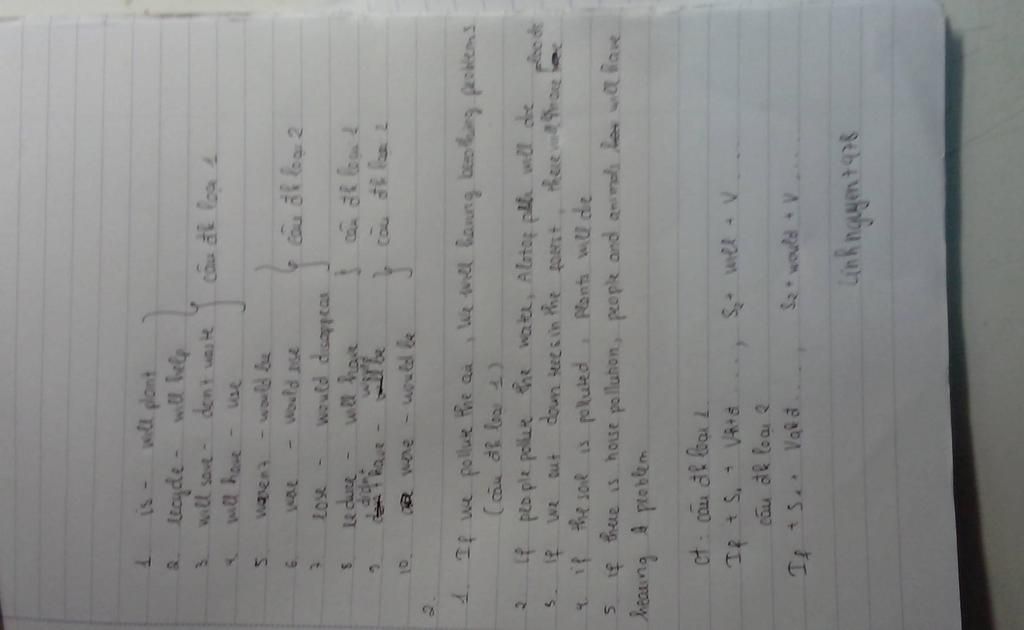 1 is - will plant
2. recycle - will help
3. will save - don't waste } câu đk loại 1
4 will have - use
5. weren't - would be
6. were - would use } câu đk loại 2
7 lose - would disappear
8 reduce - will have } câu đk loại 1
9 didn't have - would be } câu đk loại 2
10 were - would be
2.
1. If we pollute the air, We will having breathing problems
(câu đk loại 1)
2 if people pollute the water, A lot of fish will die
3. if we cut down trees in the forest, there will more floods
4. if the soil is polluted, plants will die
5. if there is noise pollution, people and animals will have
hearing problem
ct: câu đk loại 1
If + S1 + Vhtđ ....., S2 + will + V .....
câu đk loại 2
If + S1 + Vqkđ ....., S2 + would + V .....
linhnguyen+978